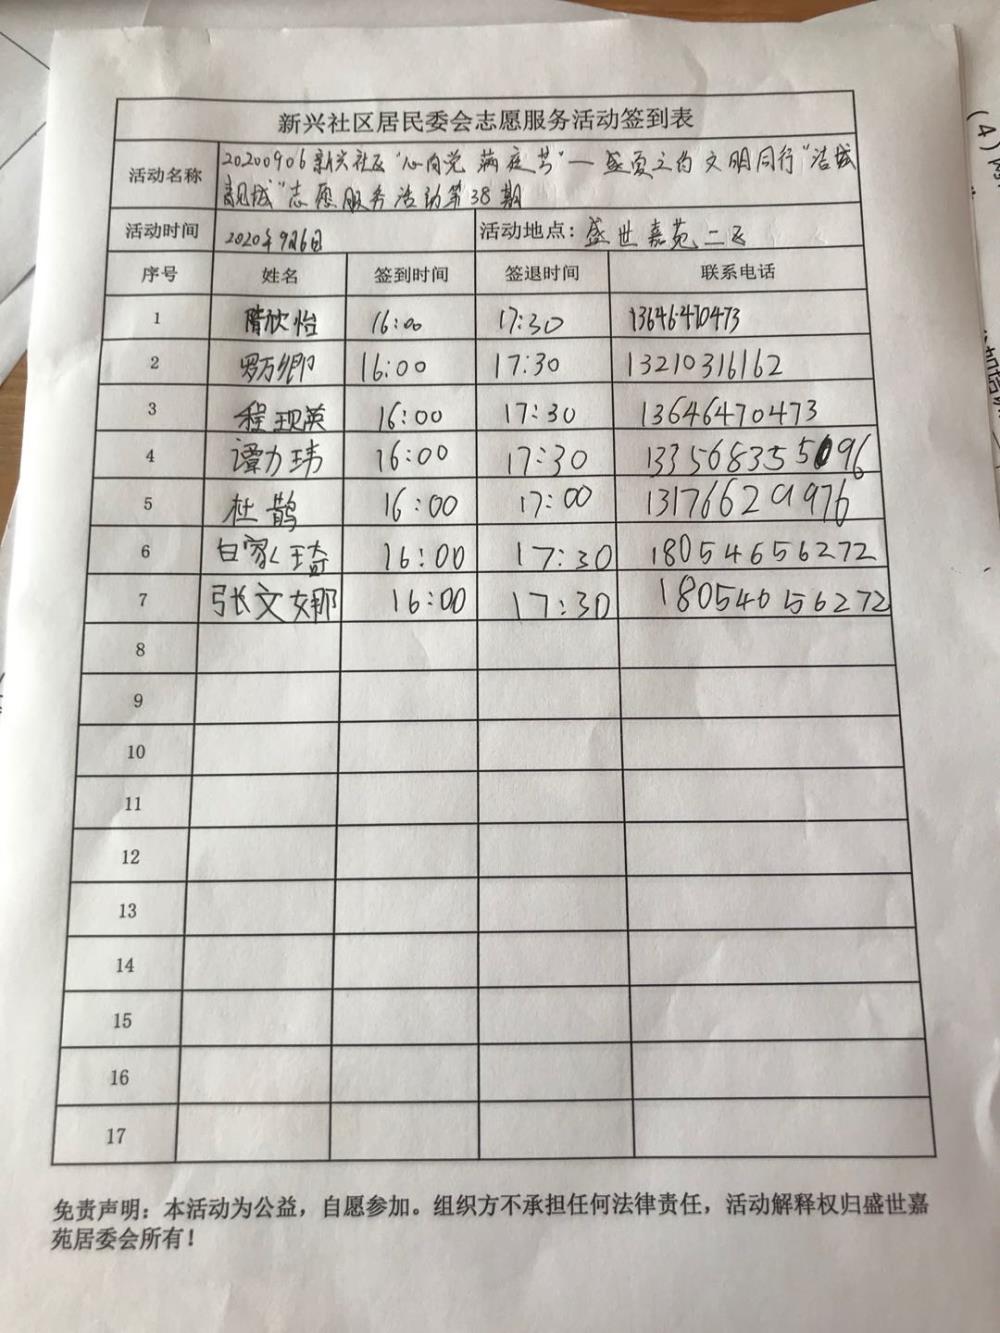 新兴社区居民委会志愿服务活动签到表
活动名称 20200906新兴社区"心向党 满庭芳"—盛夏之约 文明同行"洁城
靓城"志愿服务活动第38期
活动时间 2020年9月6日 活动地点：盛世嘉苑二区
序号 姓名 签到时间 签退时间 联系电话
1 隋欣怡 16:00 17:30 13646470473
2 罗万卿 16:00 17:30 13210316162
3 程现英 16:00 17:30 13646470473
4 谭力玮 16:00 17:30 133568355096
5 杜鹊 16:00 17:00 13176629976
6 白家琦 16:00 17:30 18054656272
7 张文娜 16:00 17:30 18054656272
8
9
10
11
12
13
14
15
16
17
免责声明：本活动为公益，自愿参加。组织方不承担任何法律责任，活动解释权归盛世嘉
苑居委会所有！
(4)